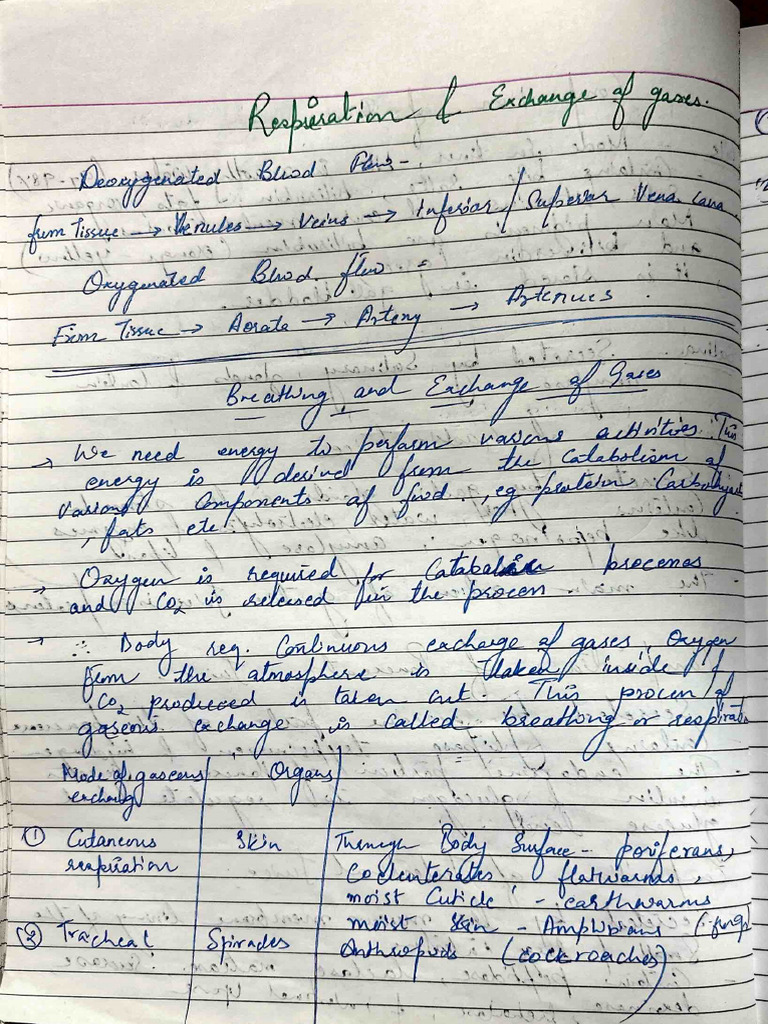 Respiration & Exchange of gases.
Deoxygenated Blood Flow -
from Tissue → Venules → Veins → Inferior / Superior Vena Cava
Oxygenated Blood flow =
From Tissue → Aorata → Artery → Arteries.
Breathing and Exchange of Gases
→ We need energy to perform various activities. This
energy is derived from the Catabolism of
various components of food, eg protein Carbohydrate
, fats etc.
→ Oxygen is required for Catabolic processes
and CO2 is released fur the process
→ ∴ Body req. Continuous exchange of gases, Oxygen
From the atmosphere is taken inside &
CO2 produced is taken out. This process of
gaseous exchange is called breathing or respiratn
Mode of gaseous Organs
exchang
① Cutaneous Skin Through Body Surface - poriferans,
respiration Coelenterates, flatworms,
moist Cuticle - earthworms
moist skin - Amphibians
② Tracheal Spirades Arthropods (cockroaches)